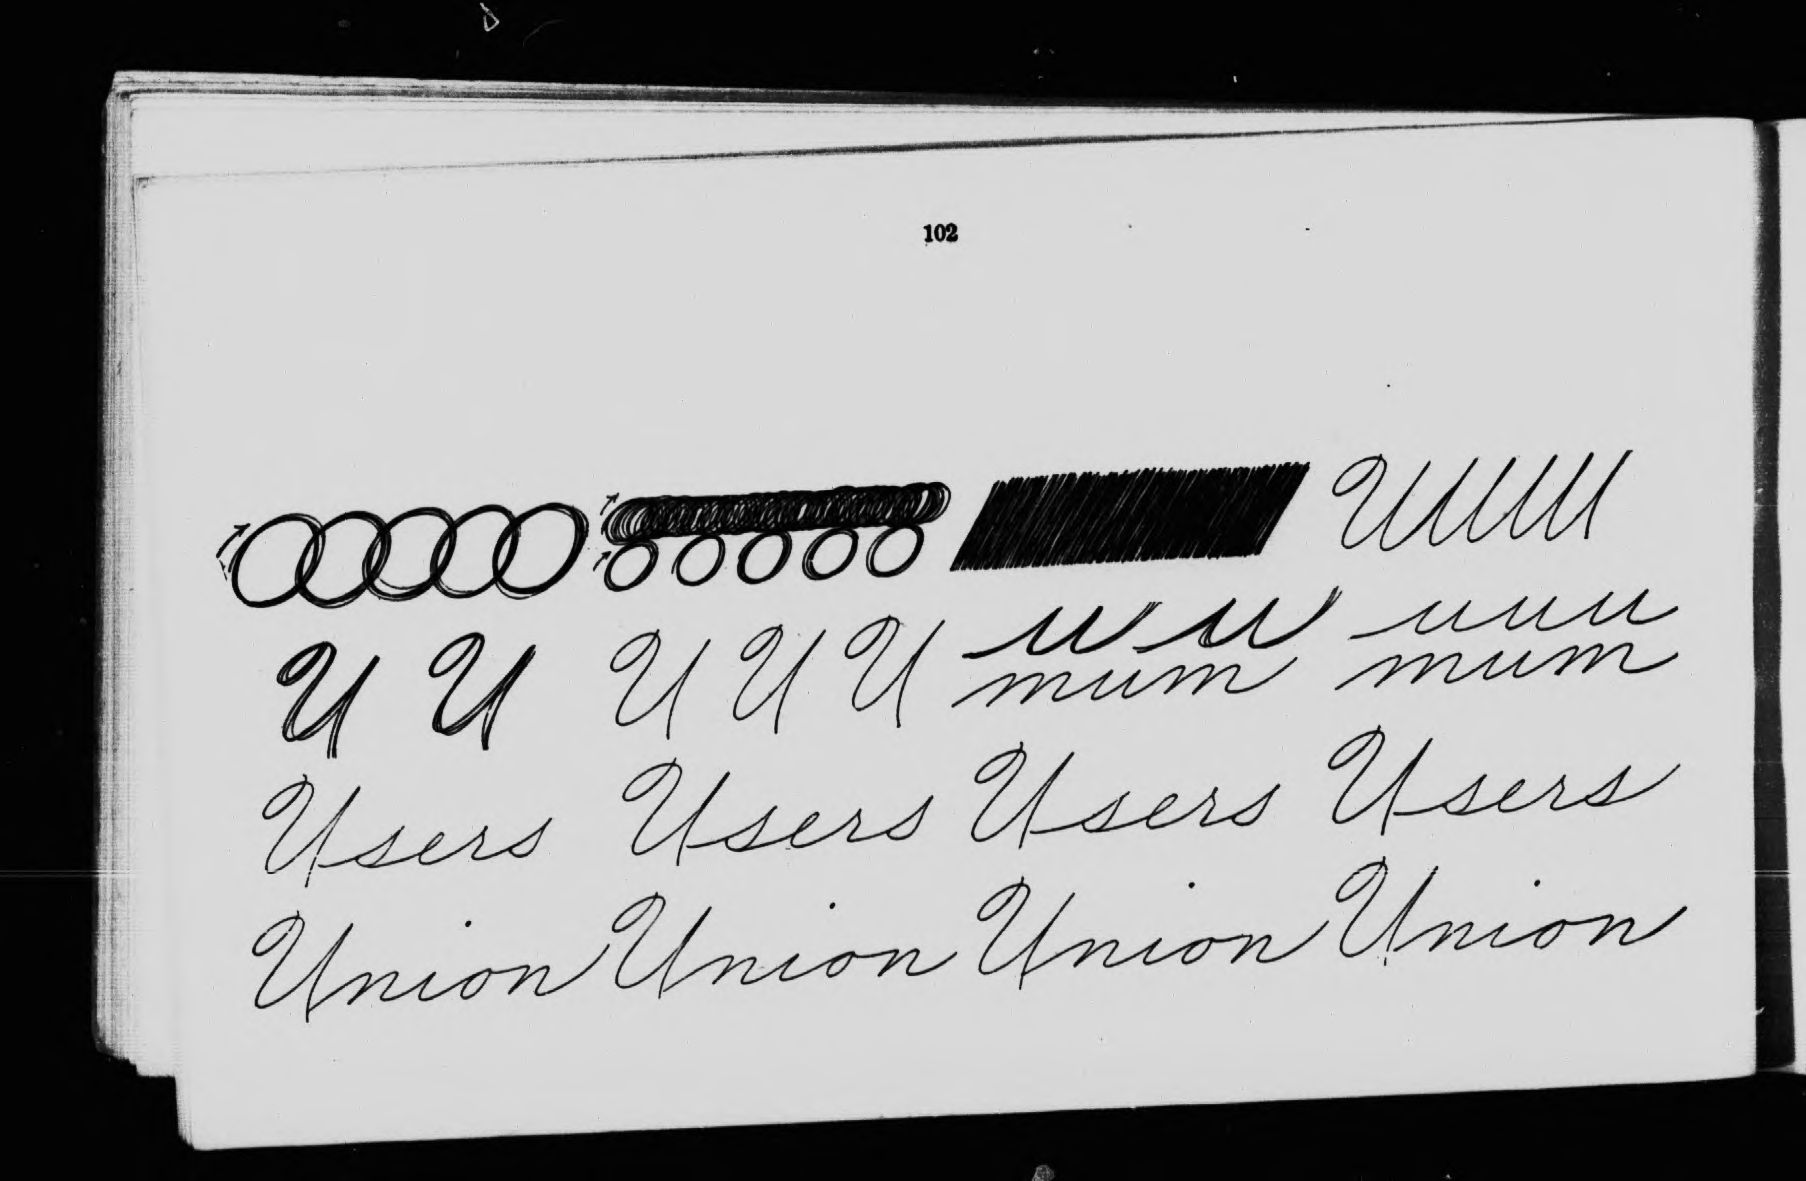 102
U
U U U U U u u u u u
mum mum
Users Users Users Users
Union Union Union Union